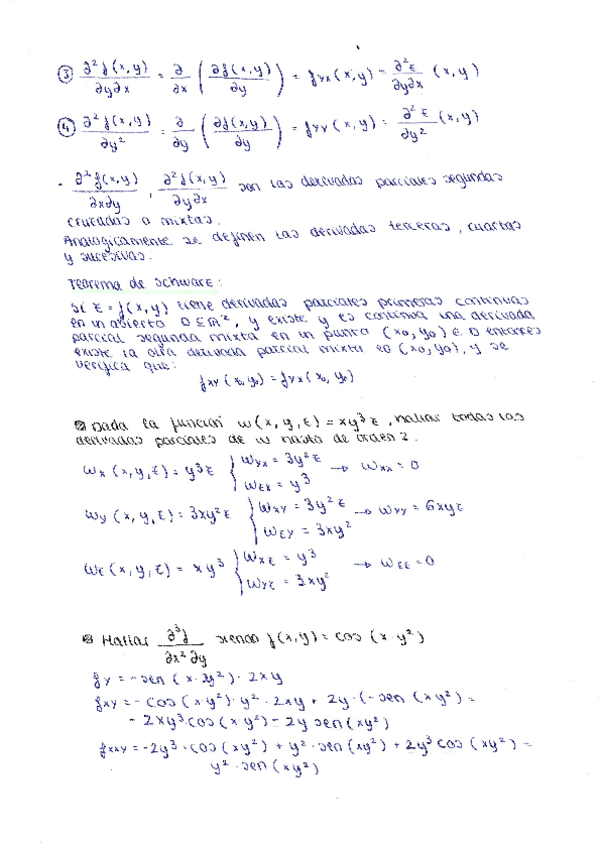 ③ ∂²f(x,y)/∂y∂x = ∂/∂x (∂f(x,y)/∂y) = fyx(x,y) = ∂²z/∂y∂x (x,y)
④ ∂²f(x,y)/∂y² = ∂/∂y (∂f(x,y)/∂y) = fyy(x,y) = ∂²z/∂y² (x,y)
- ∂²f(x,y)/∂x∂y, ∂²f(x,y)/∂y∂x son las derivadas parciales segundas
cruzadas o mixtas.
Analogicamente se definen las derivadas terceras, cuartas
y sucesivas.
Teorema de Schwarz:
Si z=f(x,y) tiene derivadas parciales primeras continuas
en un abierto D∈ℝ², y existe y es continua una derivada
parcial segunda mixta en un punto (x0,y0) ∈ D entonces
existe la otra derivada parcial mixta en (x0,y0), y se
verifica que:
fxy(x0,y0) = fyx(x0,y0)
Dada la función w(x,y,z) = xy³z, hallar todas las
derivadas parciales de w hasta de orden 2.
wx(x,y,z) = y³z { wyx = 3y²z
wzx = y³ → wxx = 0
wy(x,y,z) = 3xy²z { wxy = 3y²z
wzy = 3xy² → wyy = 6xyz
wz(x,y,z) = xy³ { wxz = y³
wyz = 3xy² → wzz = 0
Hallar ∂³f/∂x²∂y siendo f(x,y) = cos(x·y²)
fy = -sen(x·y²)·2xy
fxy = -cos(x y²)·y²·2xy + 2y·(-sen(xy²) =
- 2xy³cos(x·y²) - 2y sen(xy²)
fxxy = -2y³·cos(xy²) + y²·sen(xy²) + 2y³cos(xy²) =
y²·sen(xy²)